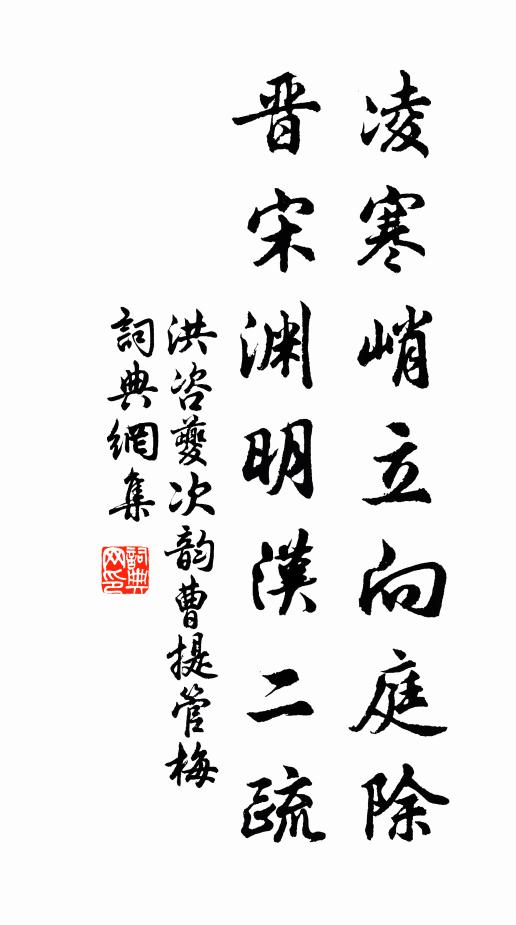 凌寒峭立向庭除
晋宋渊明漢二疏
洪咨夔次韵曹提管梅
詞典網集
詞典网印